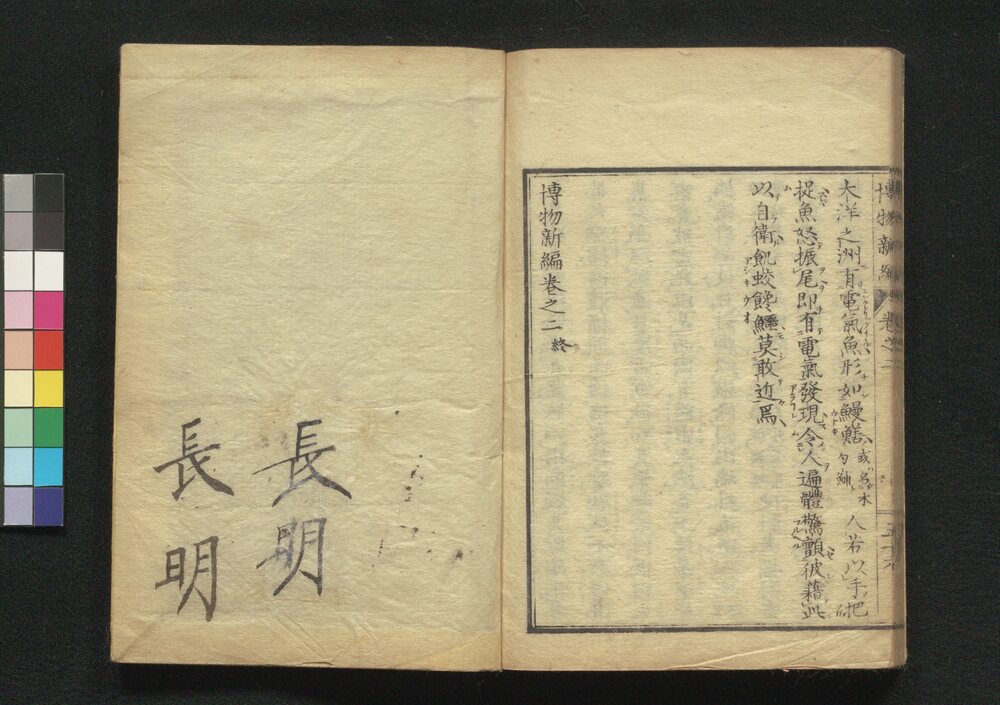 博物新編 卷之二
大洋之洲有電氣魚形如鰻鱔或名木勺鯆人若以手把
捉魚怒振尾即有電氣發現令人遍體驚顫彼藉此
以自衛飢蛟饞鱷莫敢近焉
博物新編卷之二終
長明
長明